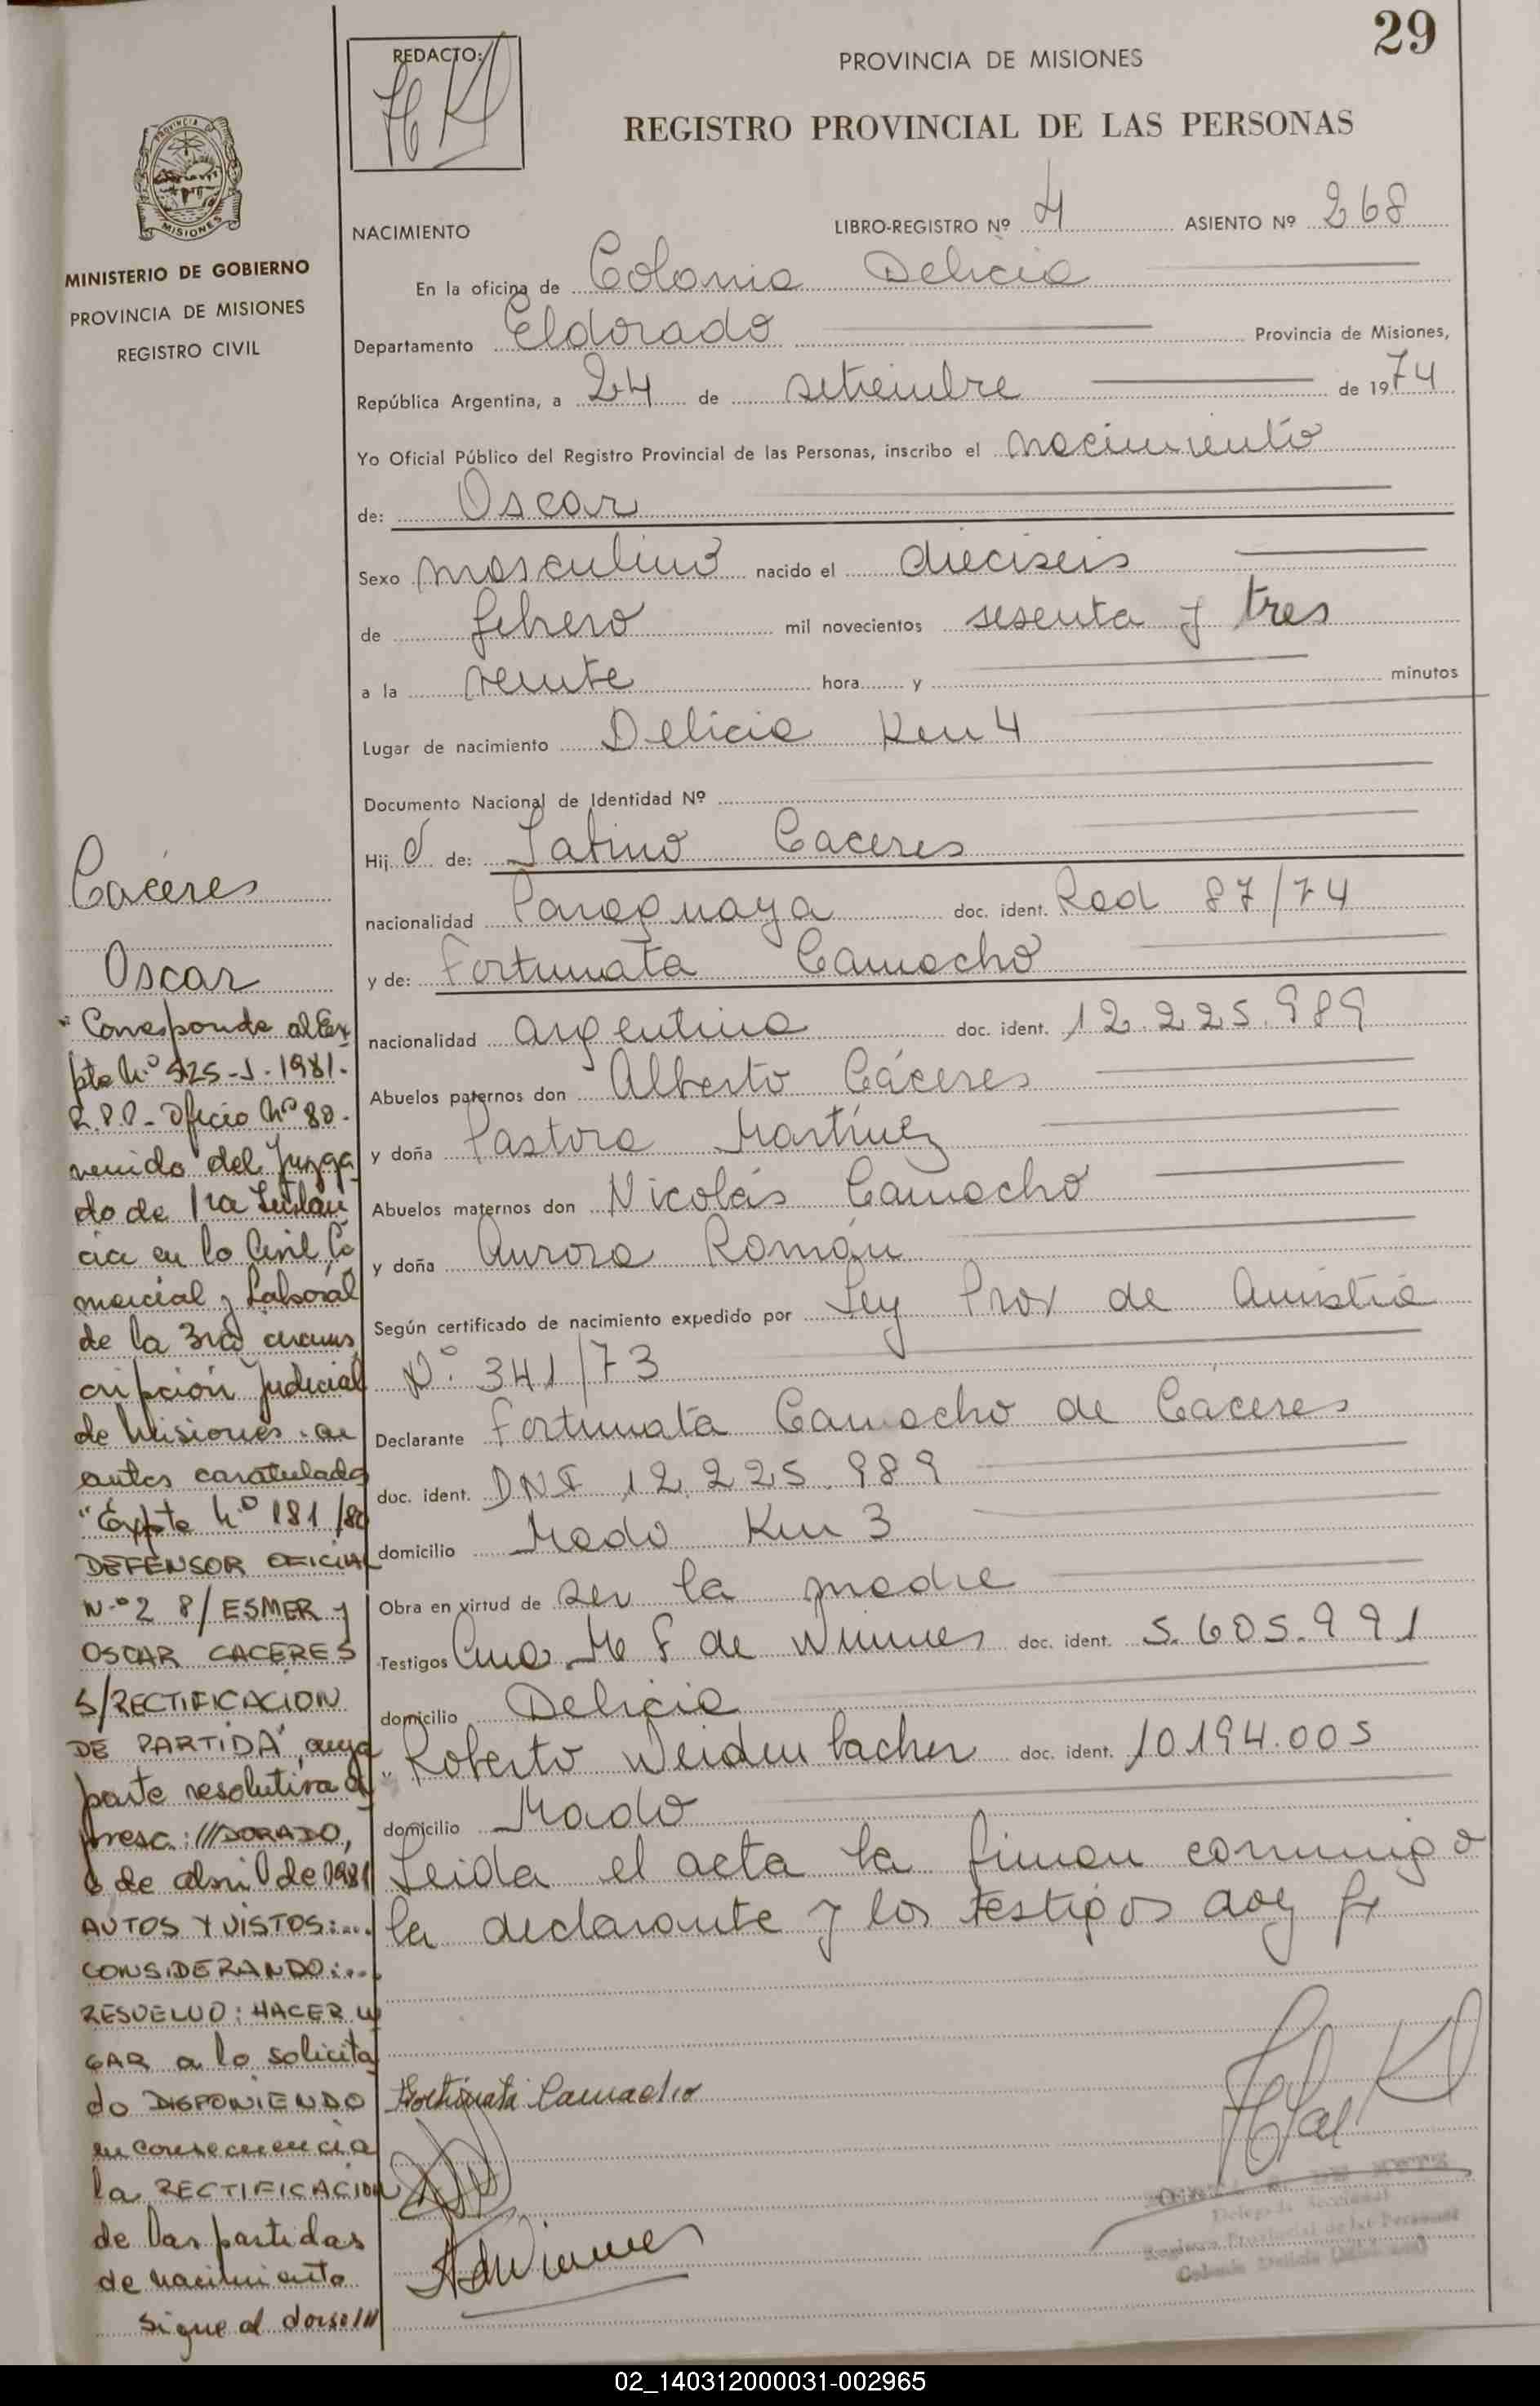 29
REDACTO:
PROVINCIA DE MISIONES
REGISTRO PROVINCIAL DE LAS PERSONAS
PROVINCIA
MISIONES
MINISTERIO DE GOBIERNO
PROVINCIA DE MISIONES
REGISTRO CIVIL
NACIMIENTO LIBRO-REGISTRO Nº 4 ASIENTO Nº 268
En la oficina de Colonia Delicia
Departamento Eldorado Provincia de Misiones,
República Argentina, a 24 de setiembre de 1974
Yo Oficial Público del Registro Provincial de las Personas, inscribo el nacimiento
de: Oscar
Sexo masculino nacido el dieciseis
de febrero mil novecientos sesenta y tres
a la veinte hora y minutos
Lugar de nacimiento Delicia Km 4
Documento Nacional de Identidad Nº
Hij o de: Latino Caceres
nacionalidad Paraguaya doc. ident. Rad 87/74
y de: Fortunata Camacho
nacionalidad argentina doc. ident. 12.225.989
Abuelos paternos don Alberto Cáceres
y doña Pastora Martínez
Abuelos maternos don Nicolás Camacho
y doña Aurora Román
Según certificado de nacimiento expedido por Ley Prov de Amistia
Nº. 341/73
Declarante Fortunata Camacho de Caceres
doc. ident. DNI 12.225.989
domicilio Mado Km 3
Obra en virtud de ser la madre
Testigos Ana M F de Winmes doc. ident. 5.605.991
domicilio Delicia
" Roberto Weidenbacher doc. ident. 10.194.005
domicilio Mado
Leida el acta la firman conmigo
la declarante y los testigos doy fe
Fortunata Camacho
Delegada Seccional
Registro Provincial de las Personas
Colonia Delicia (Misiones)
Cáceres
Oscar
"Corresponde al Ex
pte N.º 525-J-1981-
R.P.P- Oficio Nº 80-
venido del Juzga
do de 1ra Instan
cia en lo Civil Co
mercial y Laboral
de la 3ra circuns
cripción Judicial
de Misiones en
autos caratulados
"Expte Nº 181/80
DEFENSOR OFICIAL
N.º 2 S/ ESMER y
OSCAR CACERES
S/RECTIFICACION
DE PARTIDA", cuya
parte resolutiva d
presc: ///DORADO,
6 de abril de 1981
AUTOS Y VISTOS:....
CONSIDERANDO:....
RESUELVO: HACER LU
GAR a lo solicita
do DISPONIENDO
en consecuencia
la RECTIFICACION
de las partidas
de nacimiento
sigue al dorso///
02_140312000031-002965